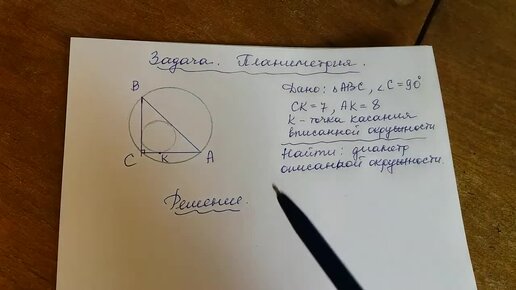 Задача. Планиметрия.
B
C
K
A
Дано: △ABC, ∠C=90°
CK=7, AK=8
K - точка касания
вписанной окружности
Найти: диаметр
описанной окружности.
Решение.